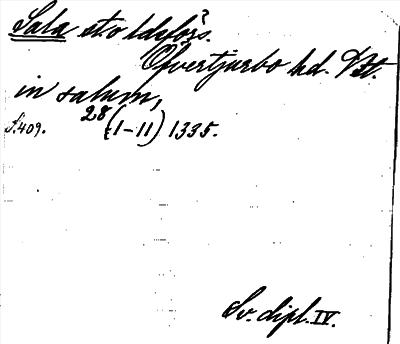 Sala st. o ldsförs.
Öfvertjurbo hd. Vstl.
in salum,
S. 409. 28 (I-II) 1335.
Sv. dipl. IV.